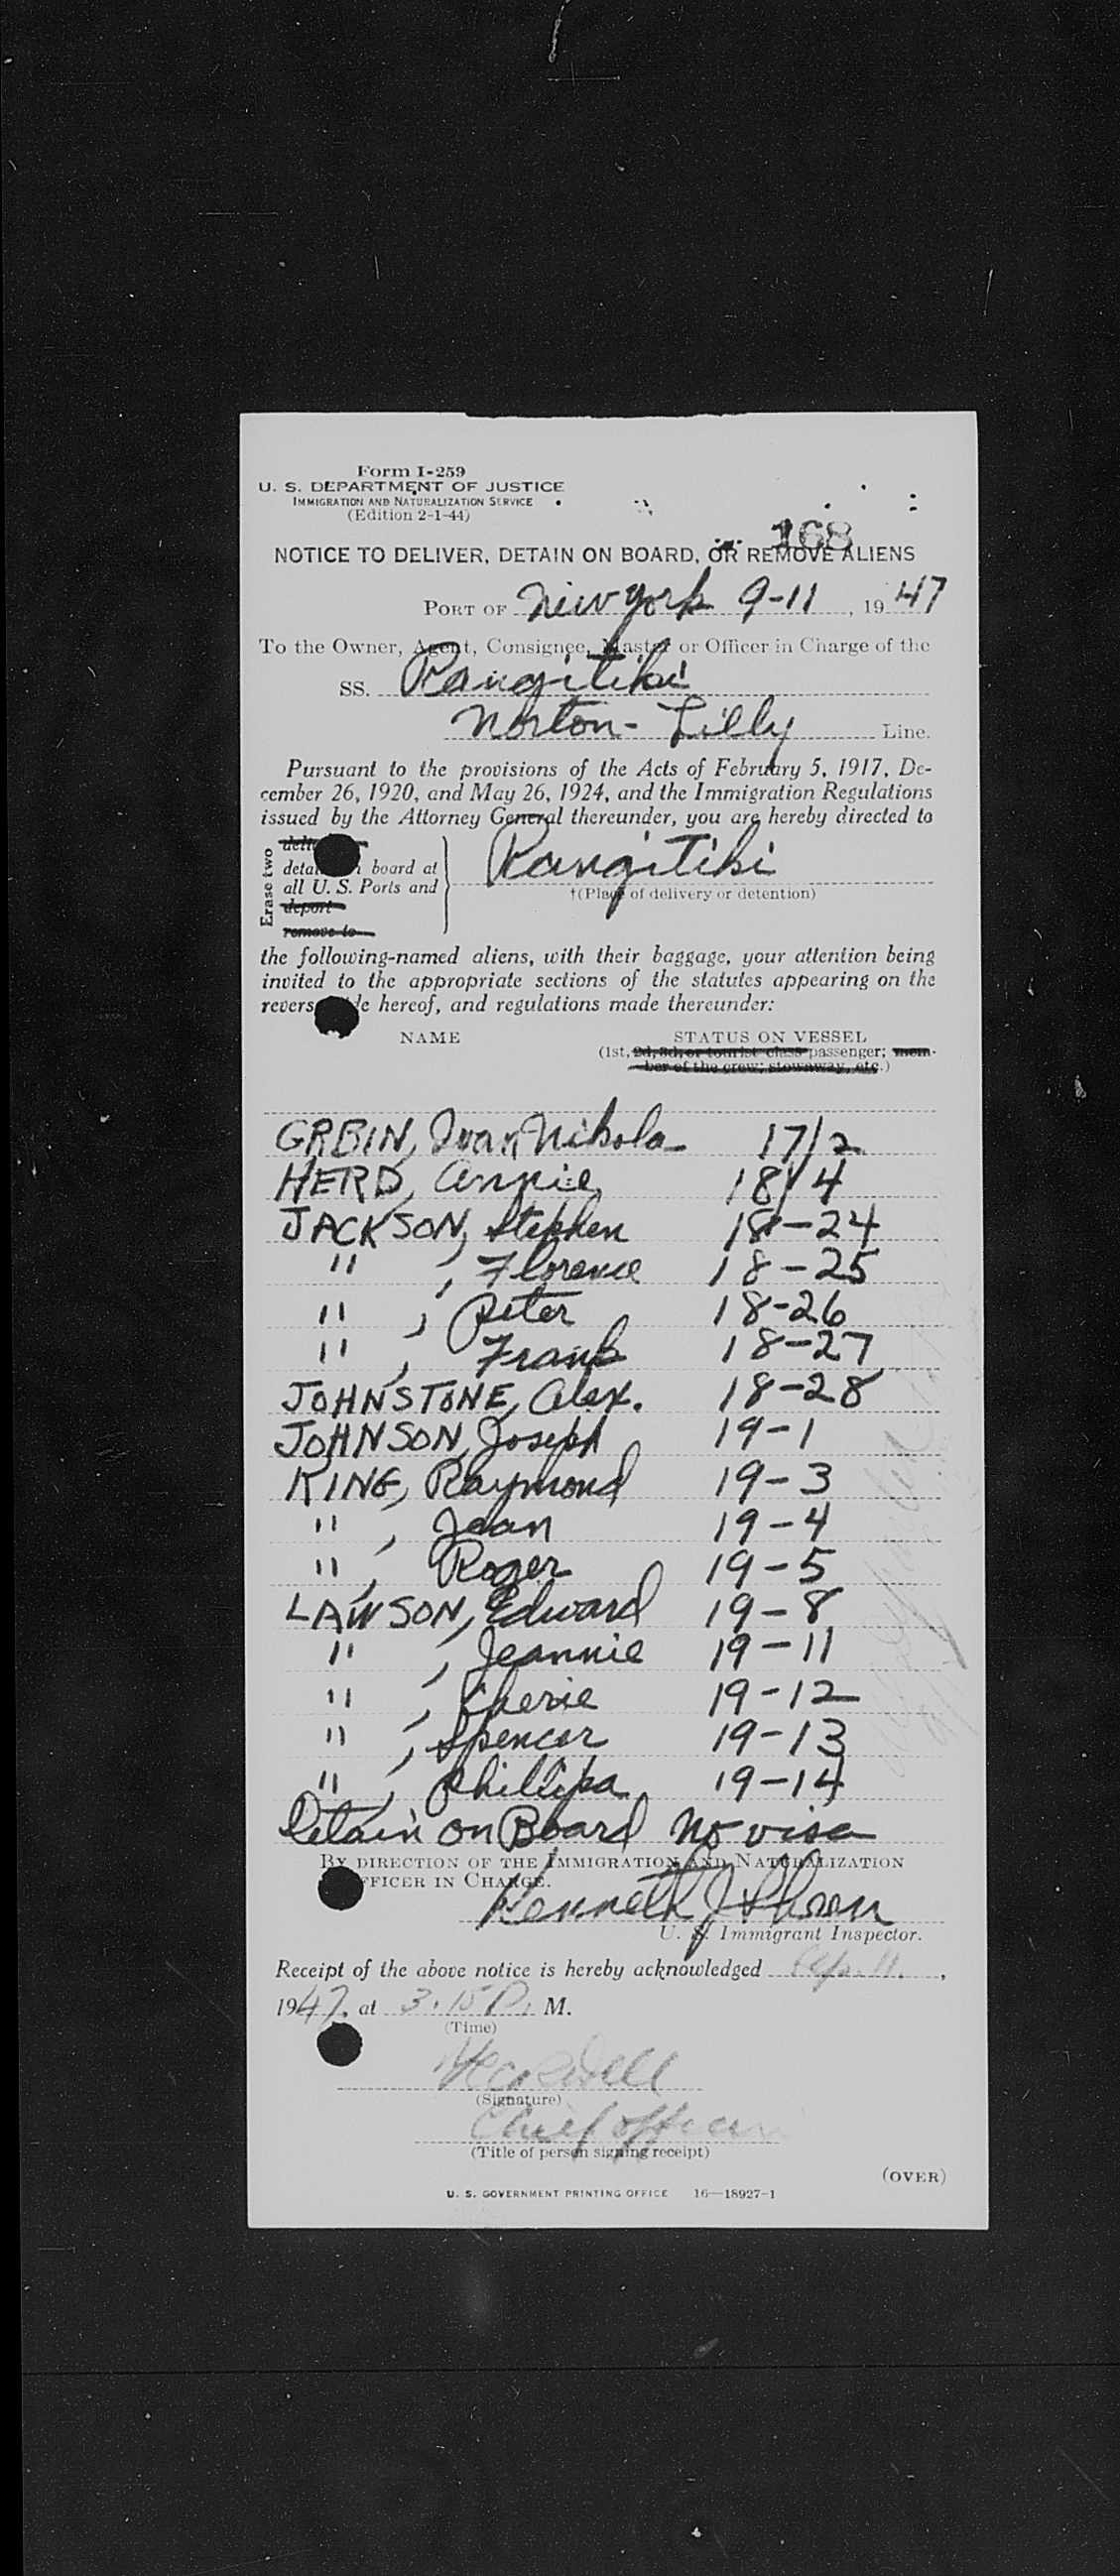 Form I-259
U. S. DEPARTMENT OF JUSTICE
IMMIGRATION AND NATURALIZATION SERVICE
(Edition 2-1-44)
168
NOTICE TO DELIVER, DETAIN ON BOARD, OR REMOVE ALIENS
PORT OF New York 9-11, 1947
To the Owner, Agent, Consignee, Master or Officer in Charge of the
SS. Rangitiki
Norton-Lilly Line.
Pursuant to the provisions of the Acts of February 5, 1917, De-
cember 26, 1920, and May 26, 1924, and the Immigration Regulations
issued by the Attorney General thereunder, you are hereby directed to
Erase two
board at
all U. S. Ports and
deport
remove to
Rangitiki
†(Place of delivery or detention)
the following-named aliens, with their baggage, your attention being
invited to the appropriate sections of the statutes appearing on the
hereof, and regulations made thereunder:
NAME STATUS ON VESSEL
(1st, 2d, 3d, or tourist class passenger; mem-
ber of the crew; stowaway, etc.)
GRBIN, Ivan Nikola 17/2
HERD, Annie 18/4
JACKSON, Stephen 18-24
" , Florence 18-25
" , Peter 18-26
" , Frank 18-27
JOHNSTONE, Alex. 18-28
JOHNSON, Joseph 19-1
KING, Raymond 19-3
" , Jean 19-4
" , Roger 19-5
LAWSON, Edward 19-8
" , Jeannie 19-11
" , Cherie 19-12
" , Spencer 19-13
" , Phillipa 19-14
Detain on Board No visa
BY DIRECTION OF THE IMMIGRATION AND NATURALIZATION
OFFICER IN CHARGE.
Kenneth J
U. S. Immigrant Inspector.
Receipt of the above notice is hereby acknowledged Sep. 11.,
1947. at 3.15 P. M.
(Time)
(Signature)
Chief officer
(Title of person signing receipt)
(OVER)
U. S. GOVERNMENT PRINTING OFFICE 16—18927-1